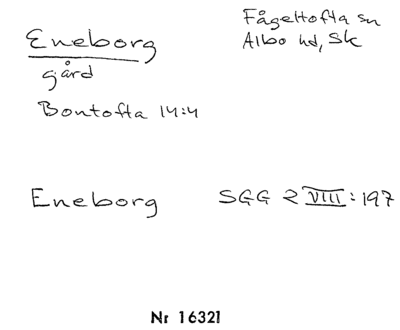 Eneborg
gård
Bontofta 14:4
Fågeltofta sn
Albo hd, Sk
Eneborg SGG 2 VIII: 197
Nr 16321